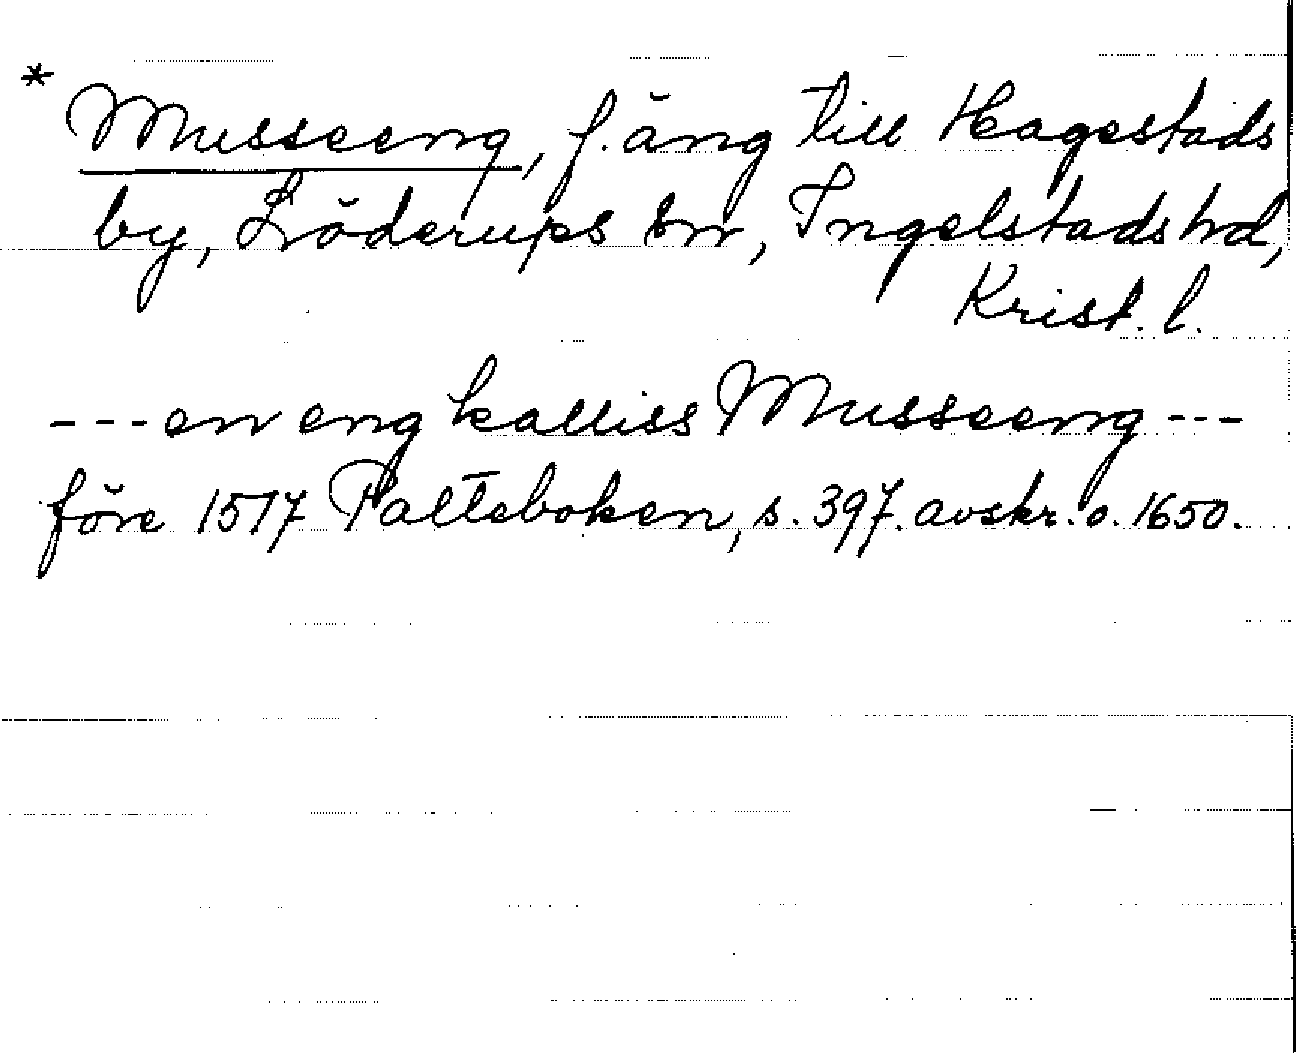 * Musseeng, f. äng till Hagestads
by, Löderups sn, Ingelstads hd,
Krist. l.
---en eng kalliss Musseeng---
före 1517 Palteboken, s. 397. avskr. o. 1650.